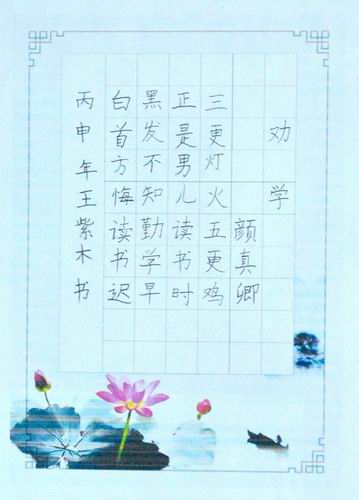 劝学
颜真卿
三更灯火五更鸡
正是男儿读书时
黑发不知勤学早
白首方悔读书迟
丙申年王紫木书